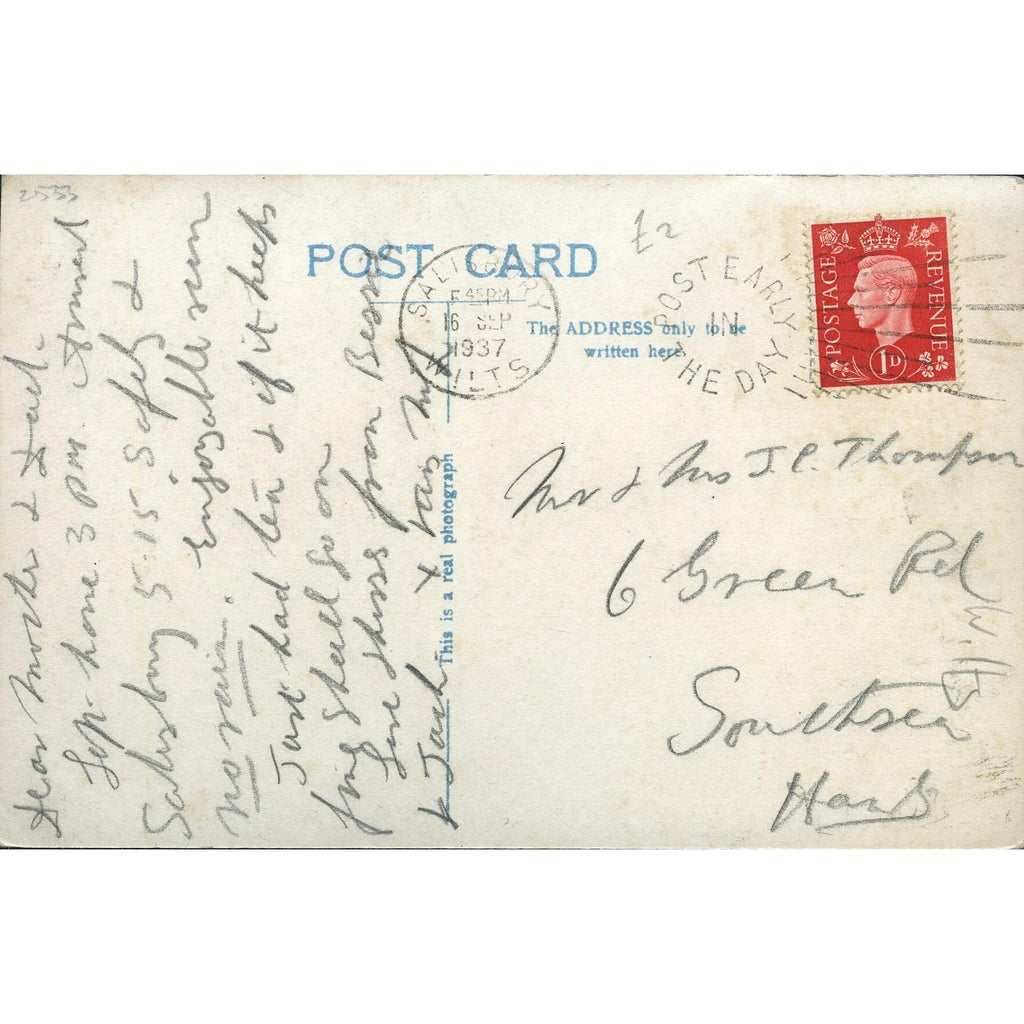 2533
£2
POST CARD
SALISBURY
5 45 PM
16 SEP
1937
WILTS
POST EARLY
IN
THE DAY
POSTAGE
REVENUE
1D
The ADDRESS only to be
written here.
This is a real photograph
Mr & Mrs J.P. Thompson
6 Green Rd
Southsea
Hants
Dear Mother & Dad.
Left home 3 pm. Arrived
Salisbury 5.15 Safely &
Enjoyable run
no rain.
Just had tea & if it keeps
fine shall go on
Love & kisses from Bessie
& Jack x